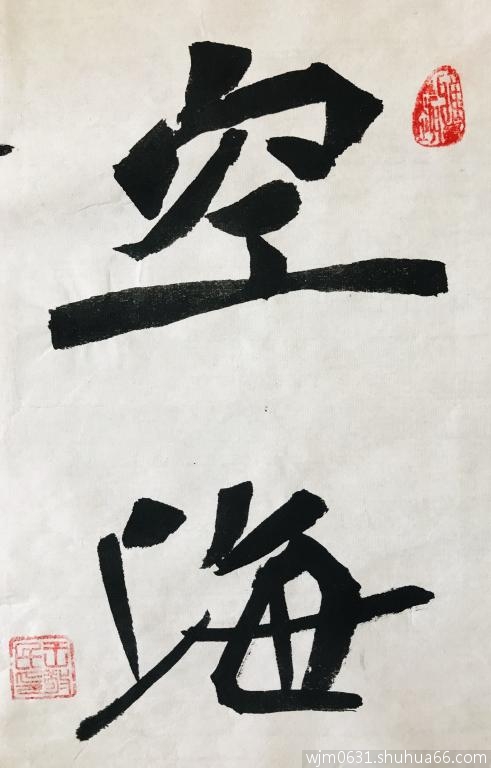 空
海
wjm0631.shuhua66.com